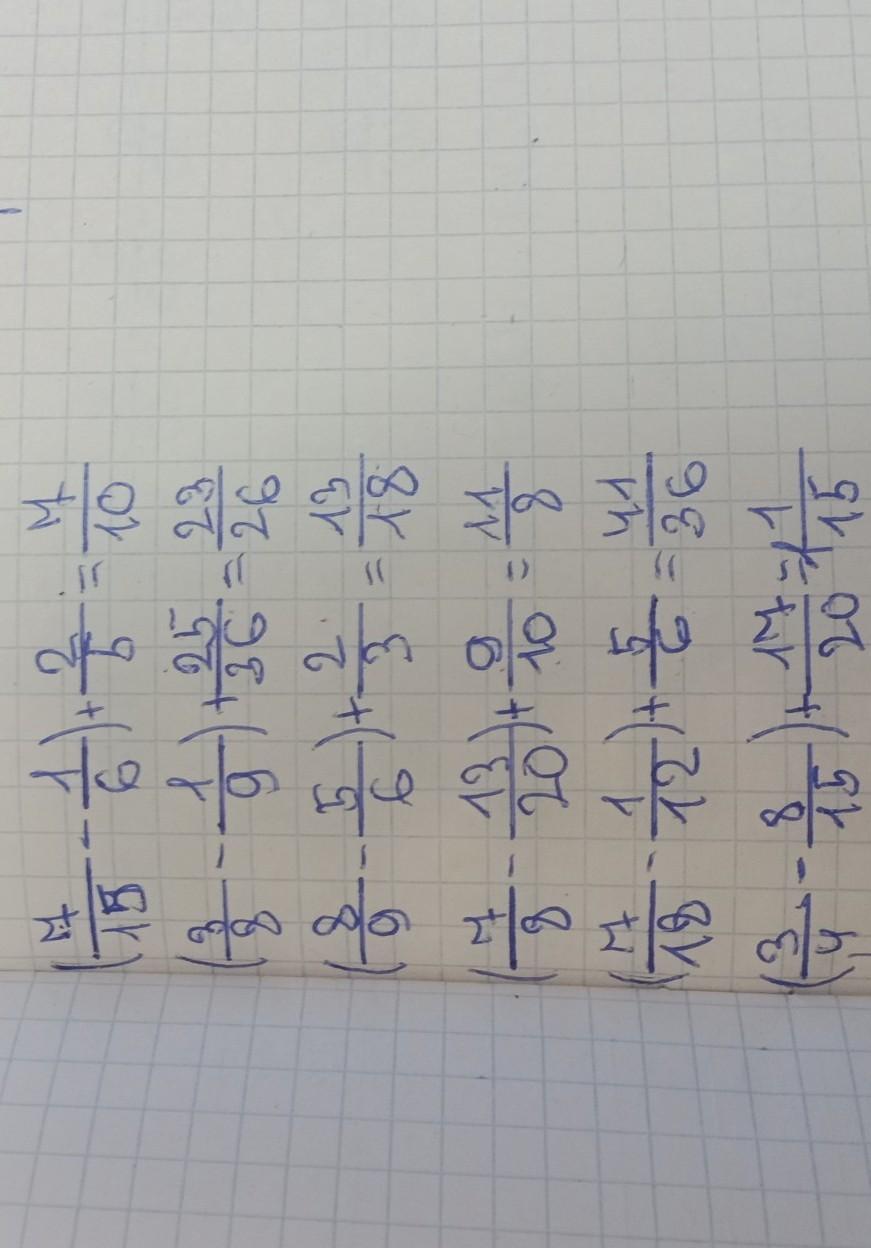 (7/15 - 1/6) + 2/5 = 7/10
(3/8 - 1/9) + 25/36 = 23/26
(8/9 - 5/6) + 2/3 = 13/18
(7/8 - 13/20) + 9/10 = 11/8
(7/18 - 1/12) + 5/6 = 41/36
(3/4 - 8/15) + 17/20 = 1 1/15